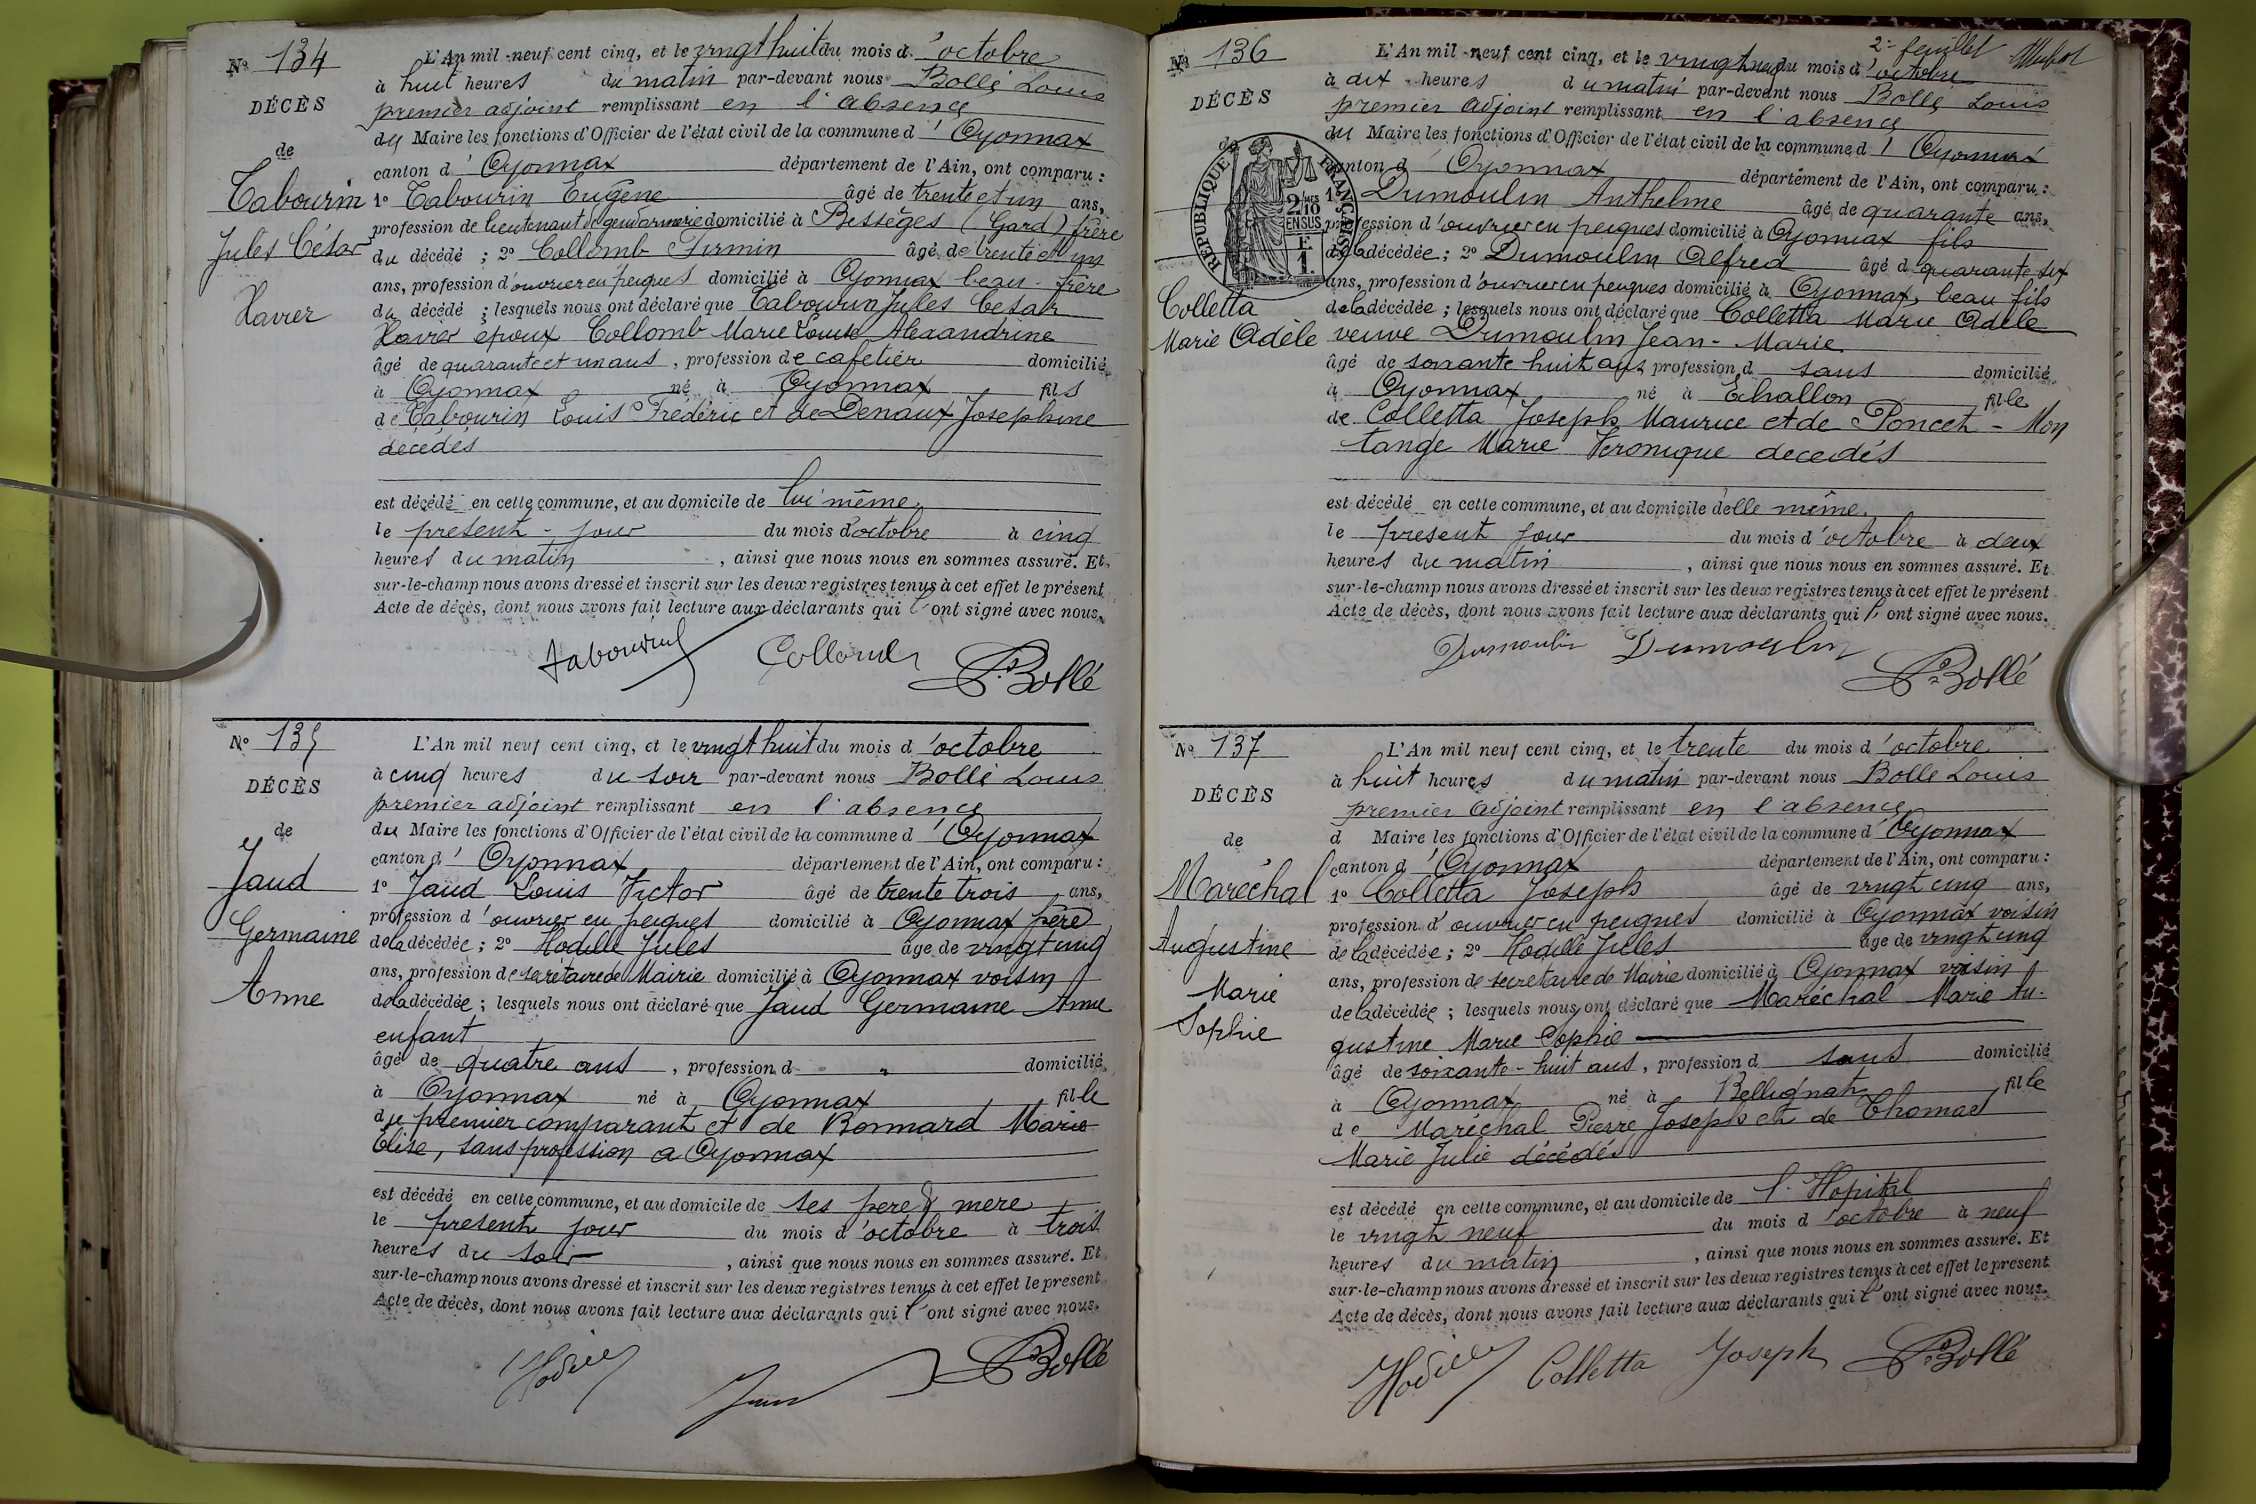 No 134
DÉCÈS
de
Tabourin
Jules César
Xavier
L'An mil neuf cent cinq, et le vingt huit du mois d'octobre
à huit heures du matin par-devant nous Bollé Louis
premier adjoint remplissant en l'absence
du Maire les fonctions d'Officier de l'état civil de la commune d'Oyonnax
canton d'Oyonnax département de l'Ain, ont comparu :
1o Tabourin Eugène âgé de trente et un ans,
profession de lieutenant de gendarmerie domicilié à Bessèges (Gard) frère
du décédé ; 2o Collomb Firmin âgé de trente et un
ans, profession d'ouvrier en peignes domicilié à Oyonnax beau-frère
du décédé ; lesquels nous ont déclaré que Tabourin Jules César
Xavier époux Collomb Marie Louise Alexandrine
âgé de quarante et un ans, profession de cafetier domicilié
à Oyonnax né à Oyonnax fils
de Tabourin Louis Frédéric et de Denaux Josephine
décédés
est décédé en cette commune, et au domicile de lui même.
le present jour du mois d'octobre à cinq
heures du matin, ainsi que nous nous en sommes assuré. Et
sur-le-champ nous avons dressé et inscrit sur les deux registres tenus à cet effet le présent
Acte de décès, dont nous avons fait lecture aux déclarants qui l'ont signé avec nous.
Tabourin Collomb Bollé
No 135
DÉCÈS
de
Jaud
Germaine
Anne
L'An mil neuf cent cinq, et le vingt huit du mois d'octobre
à cinq heures du soir par-devant nous Bollé Louis
premier adjoint remplissant en l'absence
du Maire les fonctions d'Officier de l'état civil de la commune d'Oyonnax
canton d'Oyonnax département de l'Ain, ont comparu :
1o Jaud Louis Victor âgé de trente trois ans,
profession d'ouvrier en peignes domicilié à Oyonnax père
de la décédée ; 2o Hodille Jules âgé de vingt cinq
ans, profession de secrétaire de Mairie domicilié à Oyonnax voisin
de la décédée ; lesquels nous ont déclaré que Jaud Germaine Anne
enfant
âgé de quatre ans, profession d " domicilié
à Oyonnax né à Oyonnax fille
du premier comparant et de Bonnard Marie
Élise, sans profession a Oyonnax
est décédé en cette commune, et au domicile de ses pere & mere
le present jour du mois d'octobre à trois
heures du soir, ainsi que nous nous en sommes assuré. Et
sur-le-champ nous avons dressé et inscrit sur les deux registres tenus à cet effet le présent
Acte de décès, dont nous avons fait lecture aux déclarants qui l'ont signé avec nous.
Hodille Bollé
2e feuillet
No 136
DÉCÈS
de
Colletta
Marie Adèle
RÉPUBLIQUE FRANÇAISE
2/10 EN SUS
L'An mil neuf cent cinq, et le vingt neuf du mois d'octobre
à dix heures du matin par-devant nous Bollé Louis
premier adjoint remplissant en l'absence
du Maire les fonctions d'Officier de l'état civil de la commune d'Oyonnax
canton d'Oyonnax département de l'Ain, ont comparu :
1o Dumoulin Anthelme âgé de quarante ans,
profession d'ouvrier en peignes domicilié à Oyonnax fils
de la décédée ; 2o Dumoulin Alfred âgé de quarante six
ans, profession d'ouvrier en peignes domicilié à Oyonnax, beau fils
de la décédée ; lesquels nous ont déclaré que Colletta Marie Adèle
veuve Dumoulin Jean-Marie
âgé de soixante huit ans profession d sans domicilié
à Oyonnax né à Echallon fille
de Colletta Joseph Maurice et de Poncet-Mon
tange Marie Veronique decedés
est décédé en cette commune, et au domicile d'elle même.
le present jour du mois d'octobre à deux
heures du matin, ainsi que nous nous en sommes assuré. Et
sur-le-champ nous avons dressé et inscrit sur les deux registres tenus à cet effet le présent
Acte de décès, dont nous avons fait lecture aux déclarants qui l'ont signé avec nous.
Dumoulin Dumoulin Bollé
No 137
DÉCÈS
de
Maréchal
Augustine
Marie
Sophie
L'An mil neuf cent cinq, et le trente du mois d'octobre
à huit heures du matin par-devant nous Bollé Louis
premier adjoint remplissant en l'absence
d Maire les fonctions d'Officier de l'état civil de la commune d'Oyonnax
canton d'Oyonnax département de l'Ain, ont comparu :
1o Colletta Joseph âgé de vingt cinq ans,
profession d'ouvrier en peignes domicilié à Oyonnax voisin
de la décédée ; 2o Hodille Jules âgé de vingt cinq
ans, profession de secretaire de Mairie domicilié à Oyonnax voisin
de la décédée ; lesquels nous ont déclaré que Maréchal Marie Au-
gustine Marie Sophie
âgé de soixante-huit ans, profession d sans domicilié
à Oyonnax né à Bellignat fille
de Maréchal Pierre Joseph et de Thomas
Marie Julie décédés
est décédé en cette commune, et au domicile de l'Hopital
le vingt neuf du mois d'octobre à neuf
heures du matin, ainsi que nous nous en sommes assuré. Et
sur-le-champ nous avons dressé et inscrit sur les deux registres tenus à cet effet le présent
Acte de décès, dont nous avons fait lecture aux déclarants qui l'ont signé avec nous.
Hodille Colletta Joseph Bollé